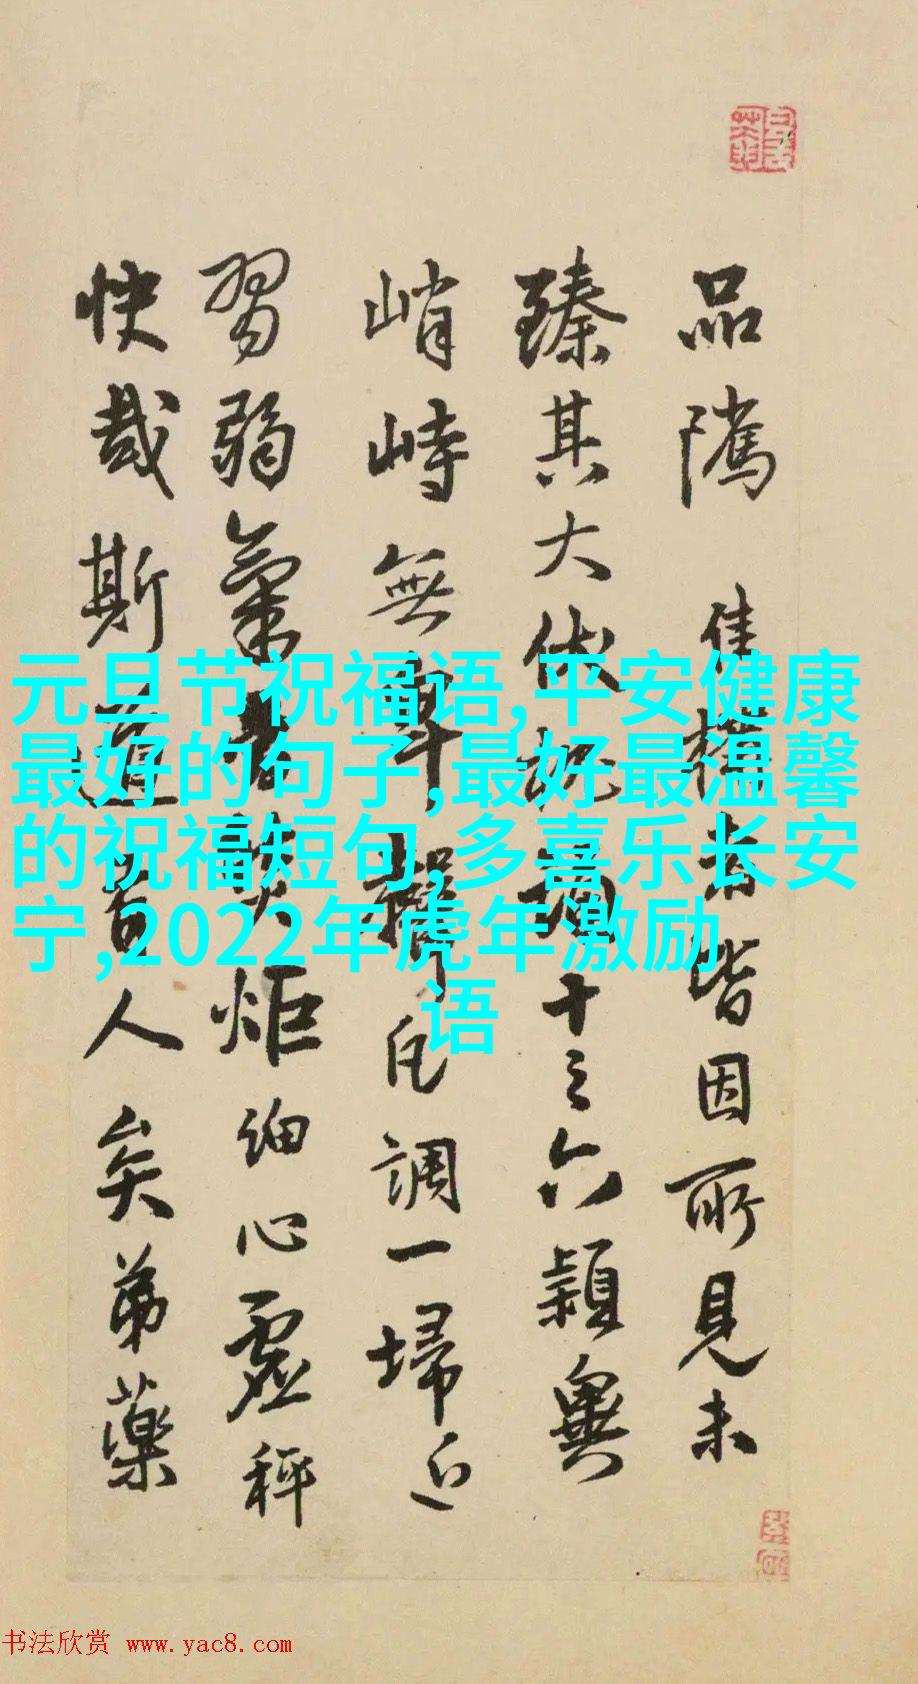 品隲者皆因所見未
臻其大十三六穎
峭峙無調一埽近
習弱氣炬細心虛秤
快哉斯人矣弟藥
元旦节祝福语,平安健康
最好的句子,最好最温馨
的祝福短句,多喜乐长安
宁,2022年虎年激励
语
书法欣赏 www.yac8.com